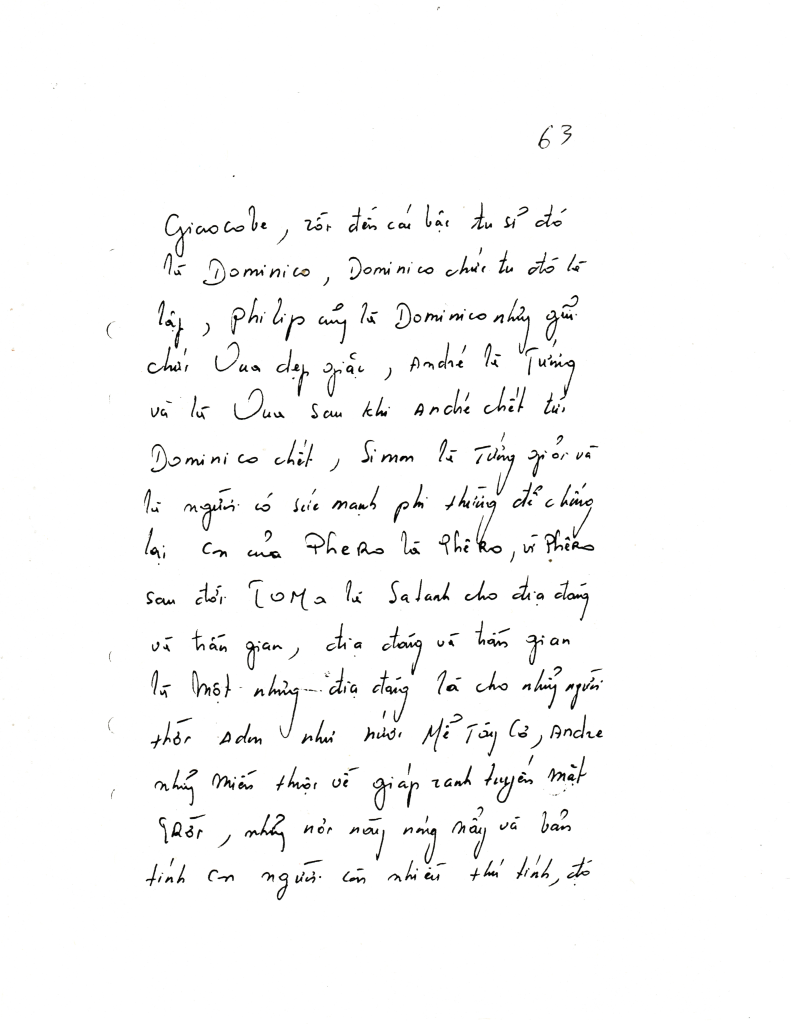 63
Giacobe, rồi đến cái bậc tu sĩ đó
là Dominico, Dominico chức tu đó là
lập, Philip cũng là Dominico những giữ
chức Vua dẹp giặc, André là Tướng
và là Vua sau khi André chết tới
Dominico chết, Simon là Tướng giỏi và
là người có sức mạnh phi thường để chống
lại con của Phero là Phêro, vì Phêro
sau đới TOMa là Satanh cho địa đàng
và trần gian, địa đàng và trần gian
là một những địa đàng là cho những người
thời Adon như nước Mễ Tây Cơ, Andre
những miền thuộc về giáp ranh tuyến mặt
trời, những nơi nầy nóng nẩy và bản
tính con người còn nhiều thú tính, đó